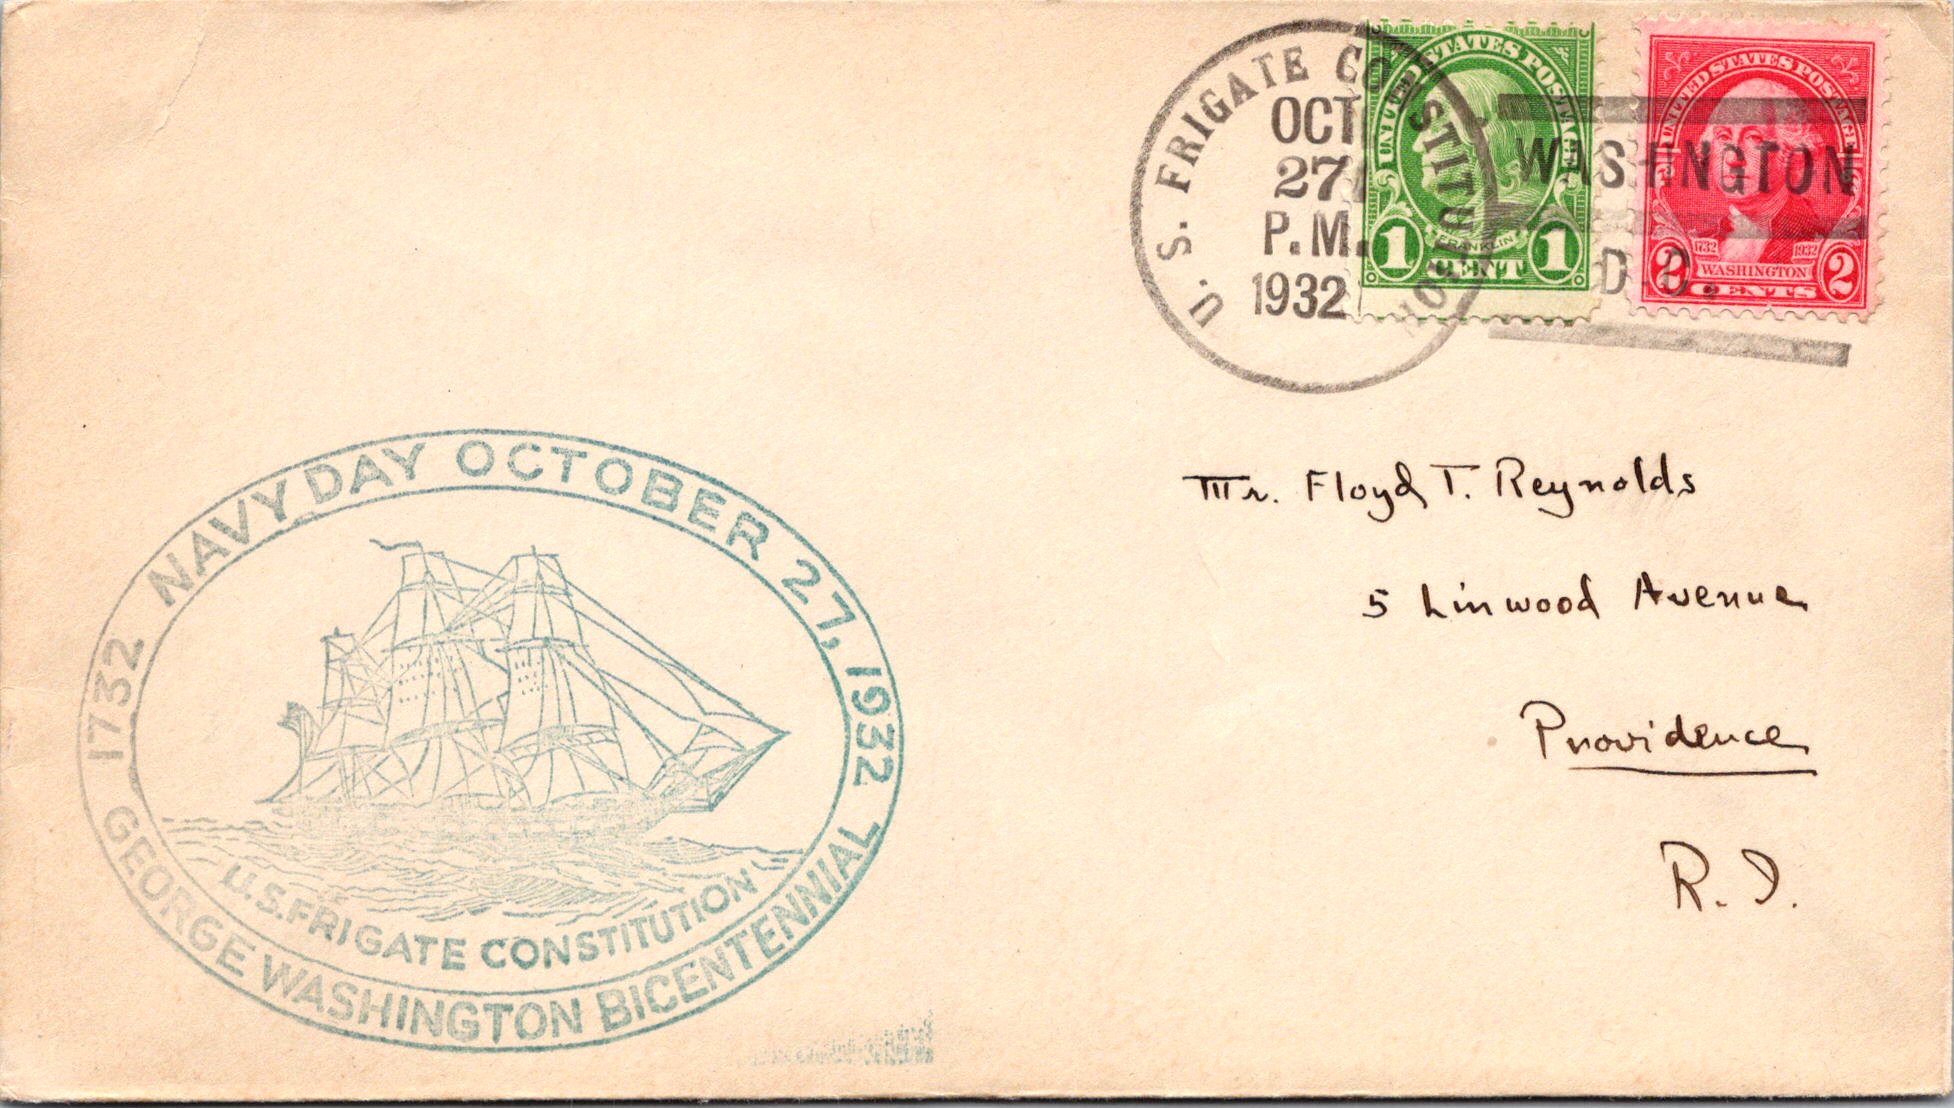 U. S. FRIGATE CONSTITUTION
OCT
27
P. M.
1932
UNITED STATES POSTAGE
FRANKLIN
1 CENT 1
UNITED STATES POSTAGE
1732 1932
WASHINGTON
2 CENTS 2
WASHINGTON
D.C.
Mr. Floyd T. Reynolds
5 Linwood Avenue
Providence
R. I.
1732 NAVY DAY OCTOBER 27, 1932
U.S. FRIGATE CONSTITUTION
GEORGE WASHINGTON BICENTENNIAL